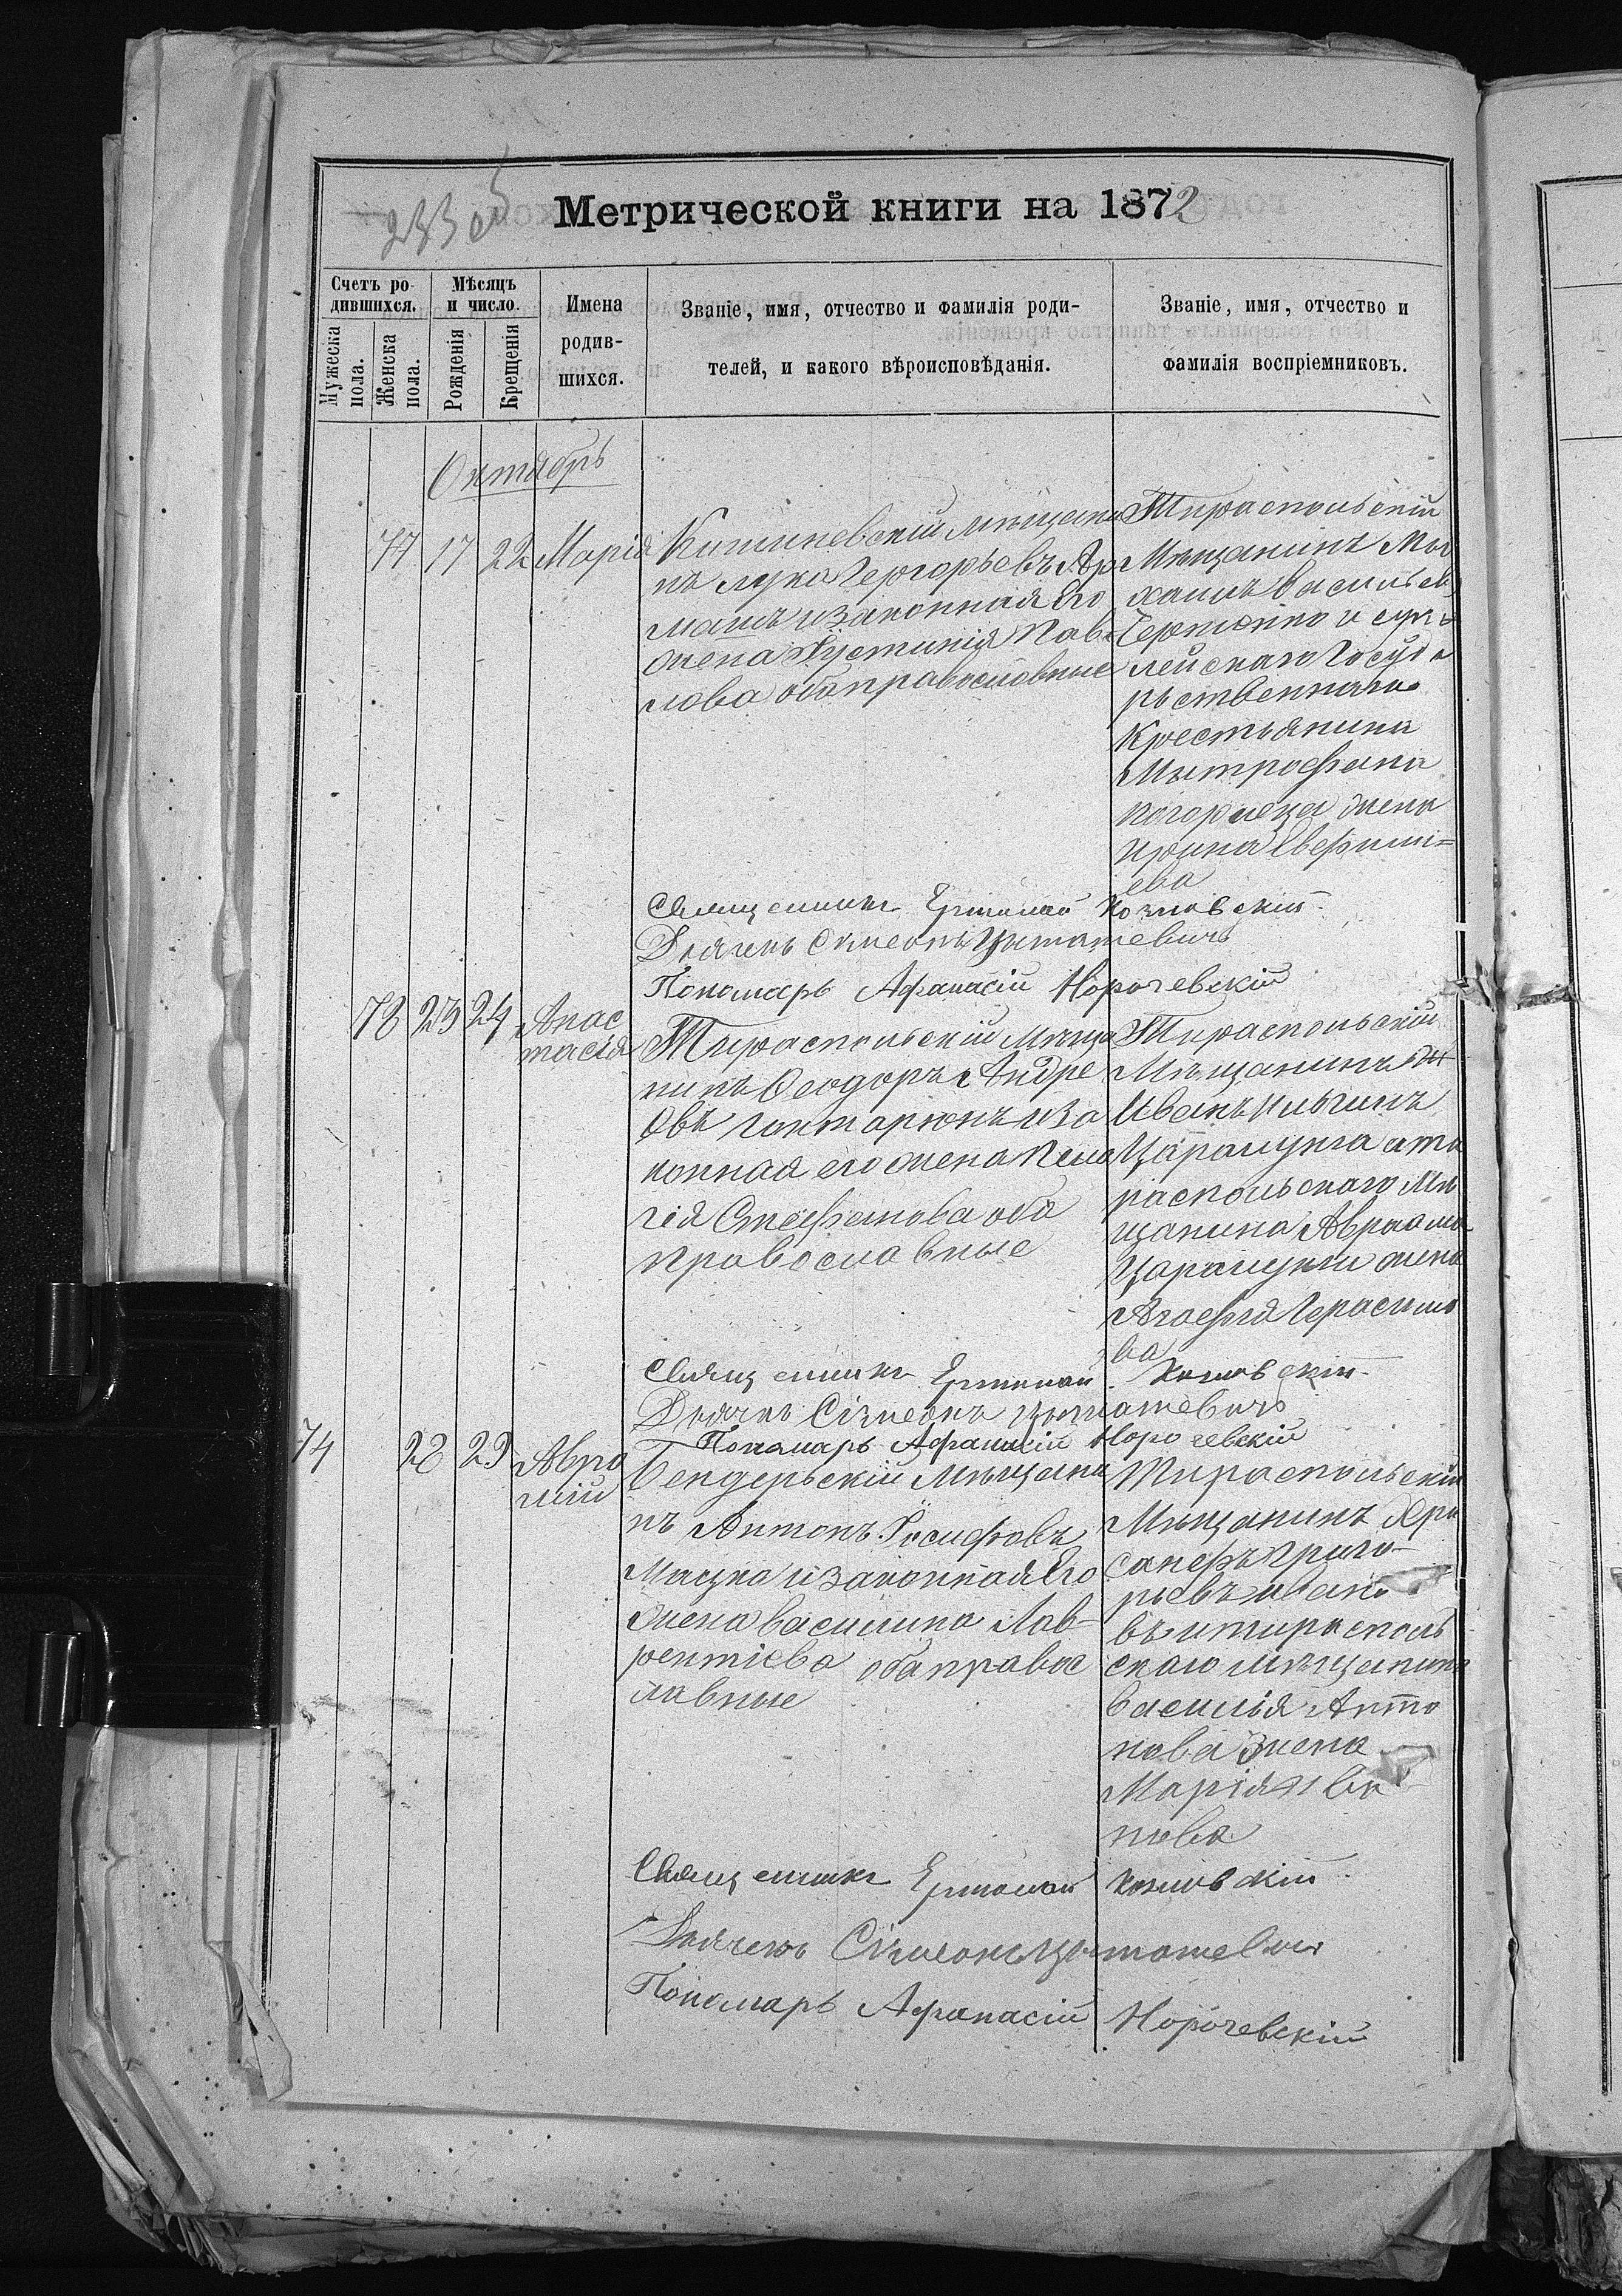 233 об
Метрической книги на 1872
Счетъ ро-
дившихся.
Мужеска
пола.
Женска
пола.
Мѣсяцъ
и число.
Рожденія
Крещенія
Имена
родив-
шихся.
Званіе, имя, отчество и фамилія роди-
телей, и какого вѣроисповѣданія.
Званіе, имя, отчество и
фамилія воспріемниковъ.
Октябрь
77 17 22 Марія
Кишиневскій мѣщани
нъ Лука Георгорьевъ Ар
машъ и законная Его
жена Іустинія Пав
лова оба православные
Тираспольскій
Мѣщанинъ Ми
хаилъ Васильев
и сук
лейскаго Госуда
рьственнаго
Крестьянина
Митрофана
жена
Ирина Евфими=
ева
Священникъ Ермолай Козловскій
Дьячекъ Сімеонъ
Пономарь Афанасій Норочевскій
78 23 24 Анас
тасія
Тираспольскій Мѣща
нинъ Ѳеодоръ Андре
овъ и за
конная его жена Пела
гія Стефанова оба
православные
Тираспольскій
Мѣщанинъ
Иванъ Ильинъ
Царалунга и ти
распольскаго Мѣ
щанина Авраама
Царалунги жена
Агафія Герасимо
ва
Священникъ Ермолай Козловскій
Дьячекъ Сімеонъ
Пономарь Афанасій Норочевскій
74 28 29 Авра
мій
Бендерьскій Мѣщани
нъ Антонъ Іосифовъ
и законная Его
жена Василина Лав-
рентіева оба правос
лавные
Тираспольскій
Мѣщанинъ Хри
санфъ Григо-
рьевъ Ивано
въ и тирасполь
скаго мѣщанина
Василія Анто
нова жена
Марія Ива
нова
Священникъ Ермолай Козловскій
Дьячекъ Сімеонъ
Пономарь Афанасій Норочевскій